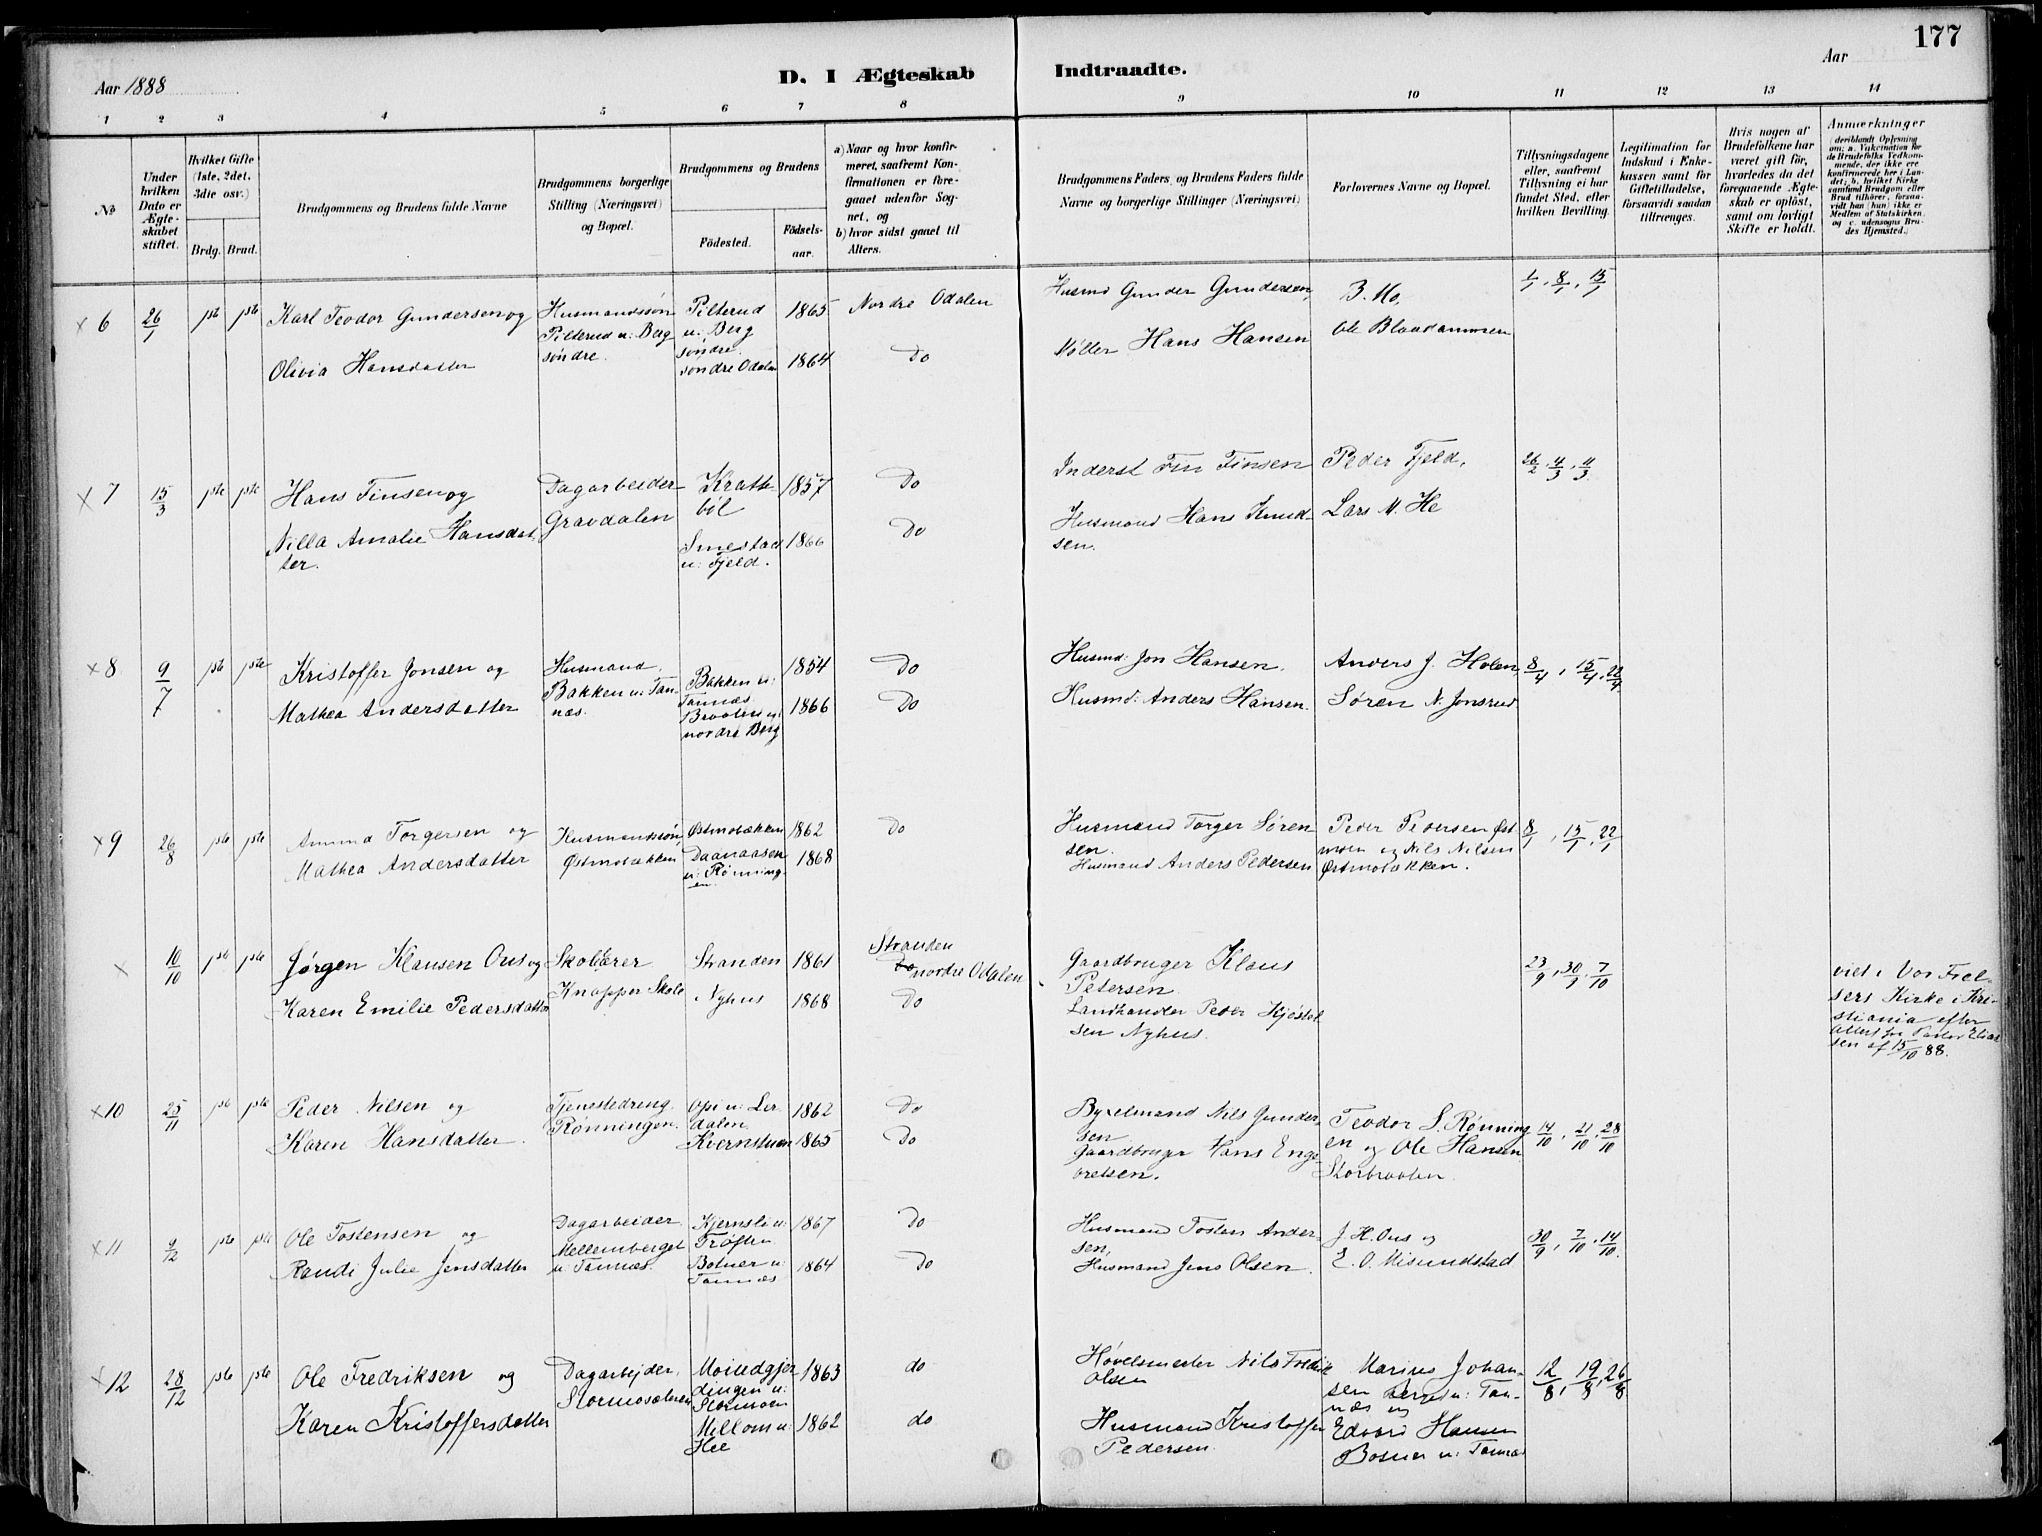 177
Aar 1888
D. I Ægteskab Indtraadte.
Aar
1 2 3 4 5 6 7 8 9 10 11 12 13 14
No
Under hvilken Dato er Ægteskabet stiftet.
Hvilket Gifte (1ste, 2det, 3die osv.)
Brdg. Brud.
Brudgommens og Brudens fulde Navne
Brudgommens borgerlige Stilling (Næringsvei) og Bopæl.
Brudgommens og Brudens
Födested.
Födsels-aar.
a) Naar og hvor konfir-
meret, saafremt Kon-
firmationen er fore-
gaaet udenfor Sog-
net, og
b) hvor sidst gaaet til
Alters.
Brudgommens Faders og Brudens Faders fulde
Navne og borgerlige Stillinger (Næringsvei)
Forlovernes Navne og Bopæl.
Tillysningsdagene
eller, saafremt
Tillysning ei har
fundet Sted, efter
hvilken Bevilling.
Legitimation for
Indskud i Enke-
kassen samt for
Giftetilladelse,
forsaavidt saadan
tiltrænges.
Hvis nogen af
Brudefolkene har
været gift för,
hvorledes da det
foregaaende Ægte-
skab er oplöst,
samt om lovligt
Skifte er holdt.
Anmærkninger
(deriblandt Oplysning
om: a. Vakcination for
de Brudefolks Vedkom-
mende, der ikke ere
konfirmerede her i Lan-
det; b. hvilket Kirke
samfund Brudgom eller
Brud tilhörer, forsaa-
vidt han (hun) ikke er
Medlem af Statskirken,
og c. udensogns Bru-
des Hjemsted.)
x 6 26/1 1ste 1ste Karl Teodor Gundersen og
Olivia Hansdatter
Husmandssøn
Pilterud u: Berg
søndre.
Pilterud
u: Berg
søndre.
søndre Odalen
1865
1864
Nordre Odalen
Do
Husmd Gunder Gundersen,
Møller Hans Hansen
B. Mo,
Ole Blaadammen
1/1, 8/1, 15/1
x 7 15/3 1ste 1ste Hans Finsen og
Nilla Amalie Hansdat-
ter.
Dagarbeider
Gravdalen
Kratte-
böl
Smestad
u: Fjeld.
1857
1866
Do
Do
Inderst Fin Finsen
Husmand Hans Knud-
sen.
Peder Fjeld,
Lars M. He
26/2, 4/3, 11/3
x 8 9/7 1ste 1ste Kristoffer Jonsen og
Mathea Andersdatter
Husmand,
Bakken u: Tan-
næs.
Bakken u:
Tannæs
Braaten u:
nordre Berg
1854
1866
Do
Do
Husmd: Jon Hansen.
Husmd: Anders Hansen.
Anders J. Holen,
Søren N. Jonsrud
8/4, 15/4, 22/4
x 9 26/8 1ste 1ste Torgersen og
Mathea Andersdatter
Husmandssøn,
Østmobækken
Østmobækken
Daanaasen
u: Rønning-
en.
1862
1868
Do
Husmand Torger Søren-
sen.
Husmand Anders Pedersen
Peder Pedersen Øst-
moen og Nils Nilsen
Østmobækken.
8/1, 15/1, 22/1
x 10/10 1ste 1ste Jørgen Klausen Ous og
Karen Emilie Pedersdatter
Skolelærer
Knapper Skole
Stranden
Nyhus
1861
1868
Stranden
nordre Odalen
Do
Gaardbruger Klaus
Petersen
Landhandler Peder Kjøstel-
sen Nyhus.
23/9, 30/9, 7/10
viet i Vor Frel-
sers Kirke i Kri-
stiania efter
Attest fra Pastor Elias-
sen af 15/10 88.
x 10 25/11 1ste 1ste Peder Nilsen og
Karen Hansdatter.
Tjenestedreng
Rønningen.
Opi u: Ler-
dalen
Kvernstuen
1862
1865
Do
Do
Byxelmand Nils Gunder-
sen
Gaardbruger Hans Enge-
bretsen.
Teodor S. Rønning-
en og Ole Hansen
Storbraaten
14/10, 21/10, 28/10
x 11 9/12 1ste 1ste Ole Tostensen og
Randi Julie Jensdatter
Dagarbeider
Mellemberget
u: Tannæs.
Kjernsli u:
Trøften
Botner u:
Tannæs
1867
1864
Do
Do
Husmand Tosten Ander-
sen,
Husmand Jens Olsen.
J. H. Ous og
E. O. Misundstad
30/9, 7/10, 14/10.
x 12 28/12 1ste 1ste Ole Fredriksen og
Karen Kristoffersdatter
Dagarbejder,
u:
Mellom u:
Hee
1863
1862
do
do
Høvelsmester Nils Fredrik
Olsen
Husmand Kristoffer
Pedersen.
Marius Johan-
sen Berget u: Tan-
næs og
Edvard Hansen
Botner u: Tannæs
12/8, 19/8, 26/8